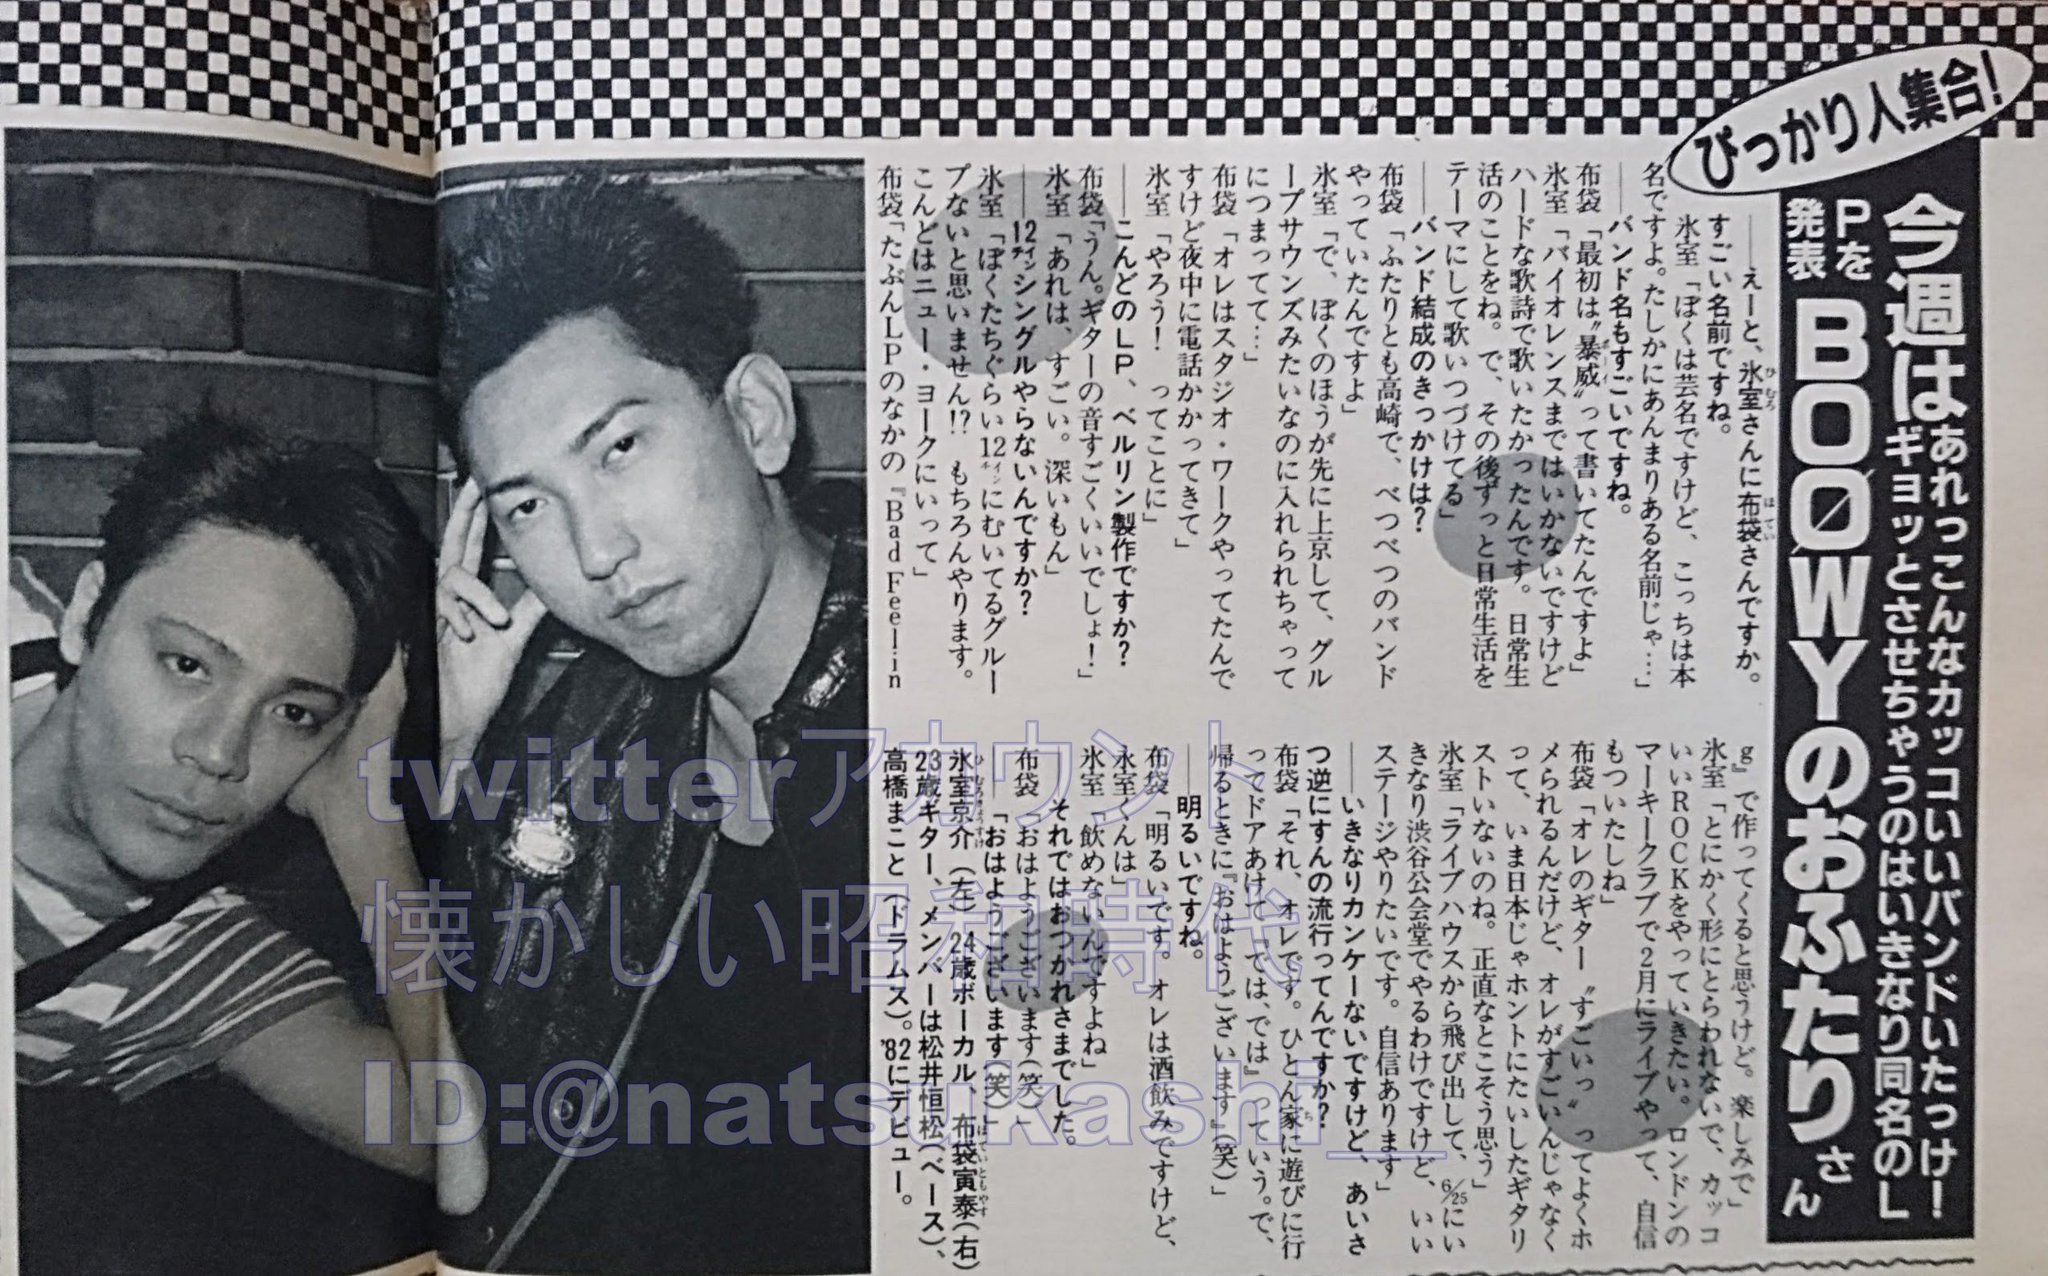 ぴっかり人集合!
今週はあれっこんなカッコいいバンドいたっけ!
ギョッとさせちゃうのはいきなり同名のL
Pを
発表
BOØWYのおふたりさん
――えーと、氷室さんに布袋さんですか。
すごい名前ですね。
氷室「ぼくは芸名ですけど、こっちは本
名ですよ。たしかにあんまりある名前じゃ…」
――バンド名もすごいですね。
布袋「最初は〝暴威〟って書いてたんですよ」
氷室「バイオレンスまではいかないですけど
ハードな歌詩で歌いたかったんです。日常生
活のことをね。で、その後ずっと日常生活を
テーマにして歌いつづけてる」
――バンド結成のきっかけは?
布袋「ふたりとも高崎で、べつべつのバンド
やっていたんですよ」
氷室「で、ぼくのほうが先に上京して、グル
ープサウンズみたいなのに入れられちゃって
につまってて…」
布袋「オレはスタジオ・ワークやってたんで
すけど夜中に電話かかってきて」
氷室「やろう! ってことに」
――こんどのLP、ベルリン製作ですか?
布袋「うん。ギターの音すごくいいでしょ!」
氷室「あれは、すごい。深いもん」
――12インチシングルやらないんですか?
氷室「ぼくたちぐらい12インチにむいてるグルー
プないと思いません!? もちろんやります。
こんどはニュー・ヨークにいって」
布袋「たぶんLPのなかの『Bad Feelin
g』で作ってくると思うけど。楽しみで」
氷室「とにかく形にとらわれないで、カッコ
いいROCKをやっていきたい。ロンドンの
マーキークラブで2月にライブやって、自信
もついたしね」
布袋「オレのギター〝すごいっ〟ってよくホ
メられるんだけど、オレがすごいんじゃなく
って、いま日本じゃホントにたいしたギタリ
ストいないのね。正直なとこそう思う」
氷室「ライブハウスから飛び出して、6/25にい
きなり渋谷公会堂でやるわけですけど、いい
ステージやりたいです。自信あります」
――いきなりカンケーないですけど、あいさ
つ逆にすんの流行ってんですか?
布袋「それ、オレです。ひとん家に遊びに行
ってドアあけて『では、では』っていう。で、
帰るときに『おはようございます』(笑)」
――明るいですね。
布袋「明るいです。オレは酒飲みですけど、
氷室くんは」
氷室「飲めないんですよね」
――それではおつかれさまでした。
布袋「おはようございます(笑)」
――「おはようございます(笑)」
氷室京介(左)24歳ボーカル、布袋寅泰(右)
23歳ギター、メンバーは松井恒松(ベース)、
高橋まこと(ドラムス)。'82にデビュー。
twitterアカウント
懐かしい昭和時代
ID:@natsukashi__